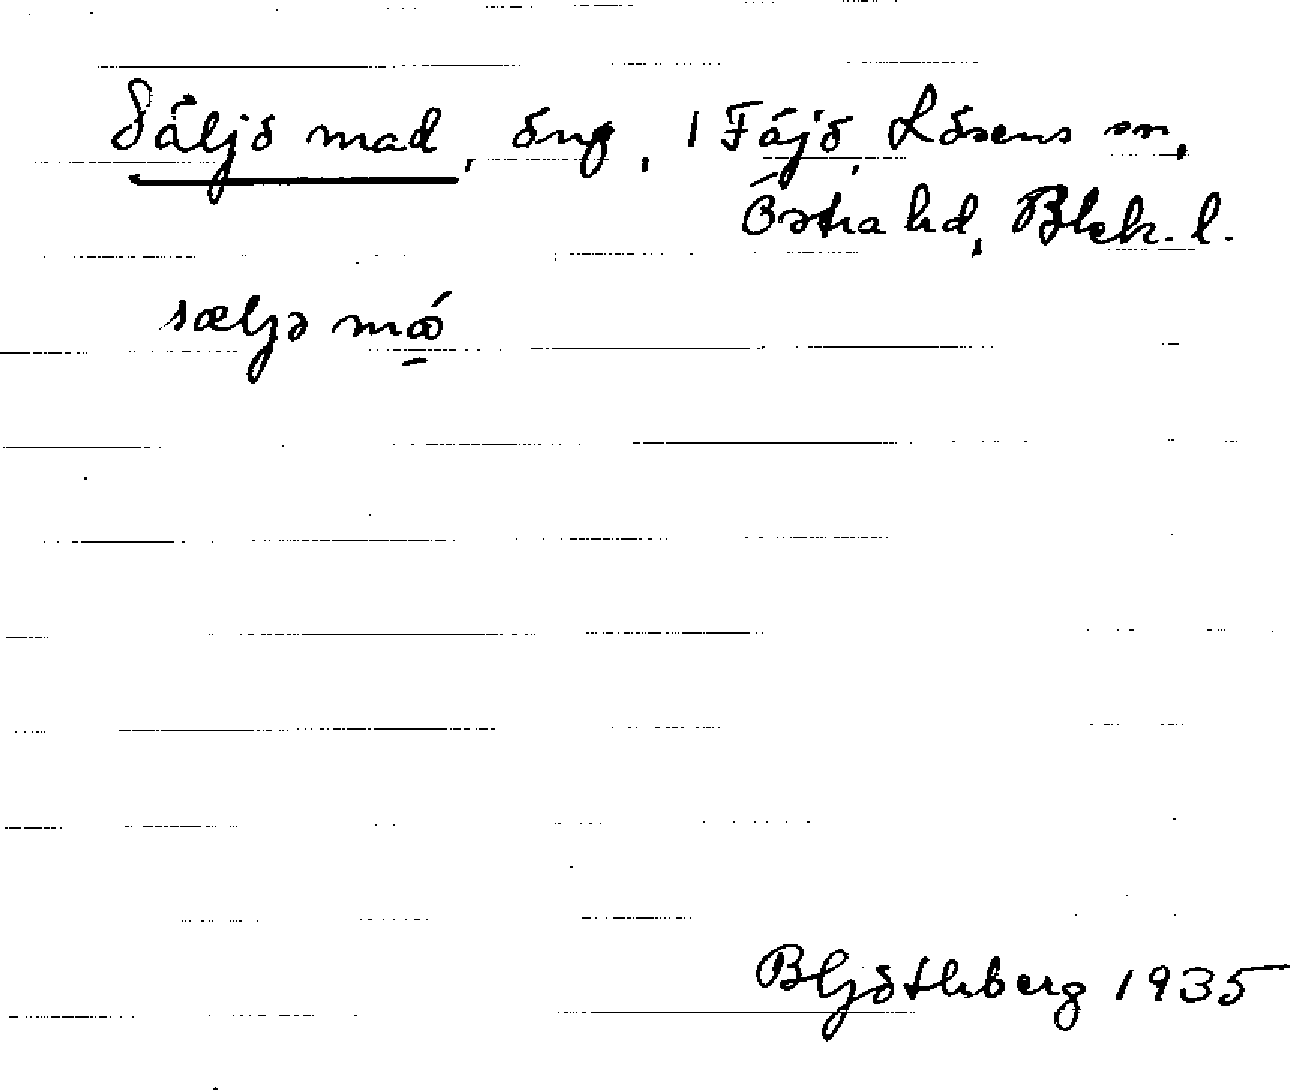 Säljö mad, äng, i Fäjö, Lösens sn,
Östra hd, Blek. l.
sæljə mǽ
B Ljöthberg 1935